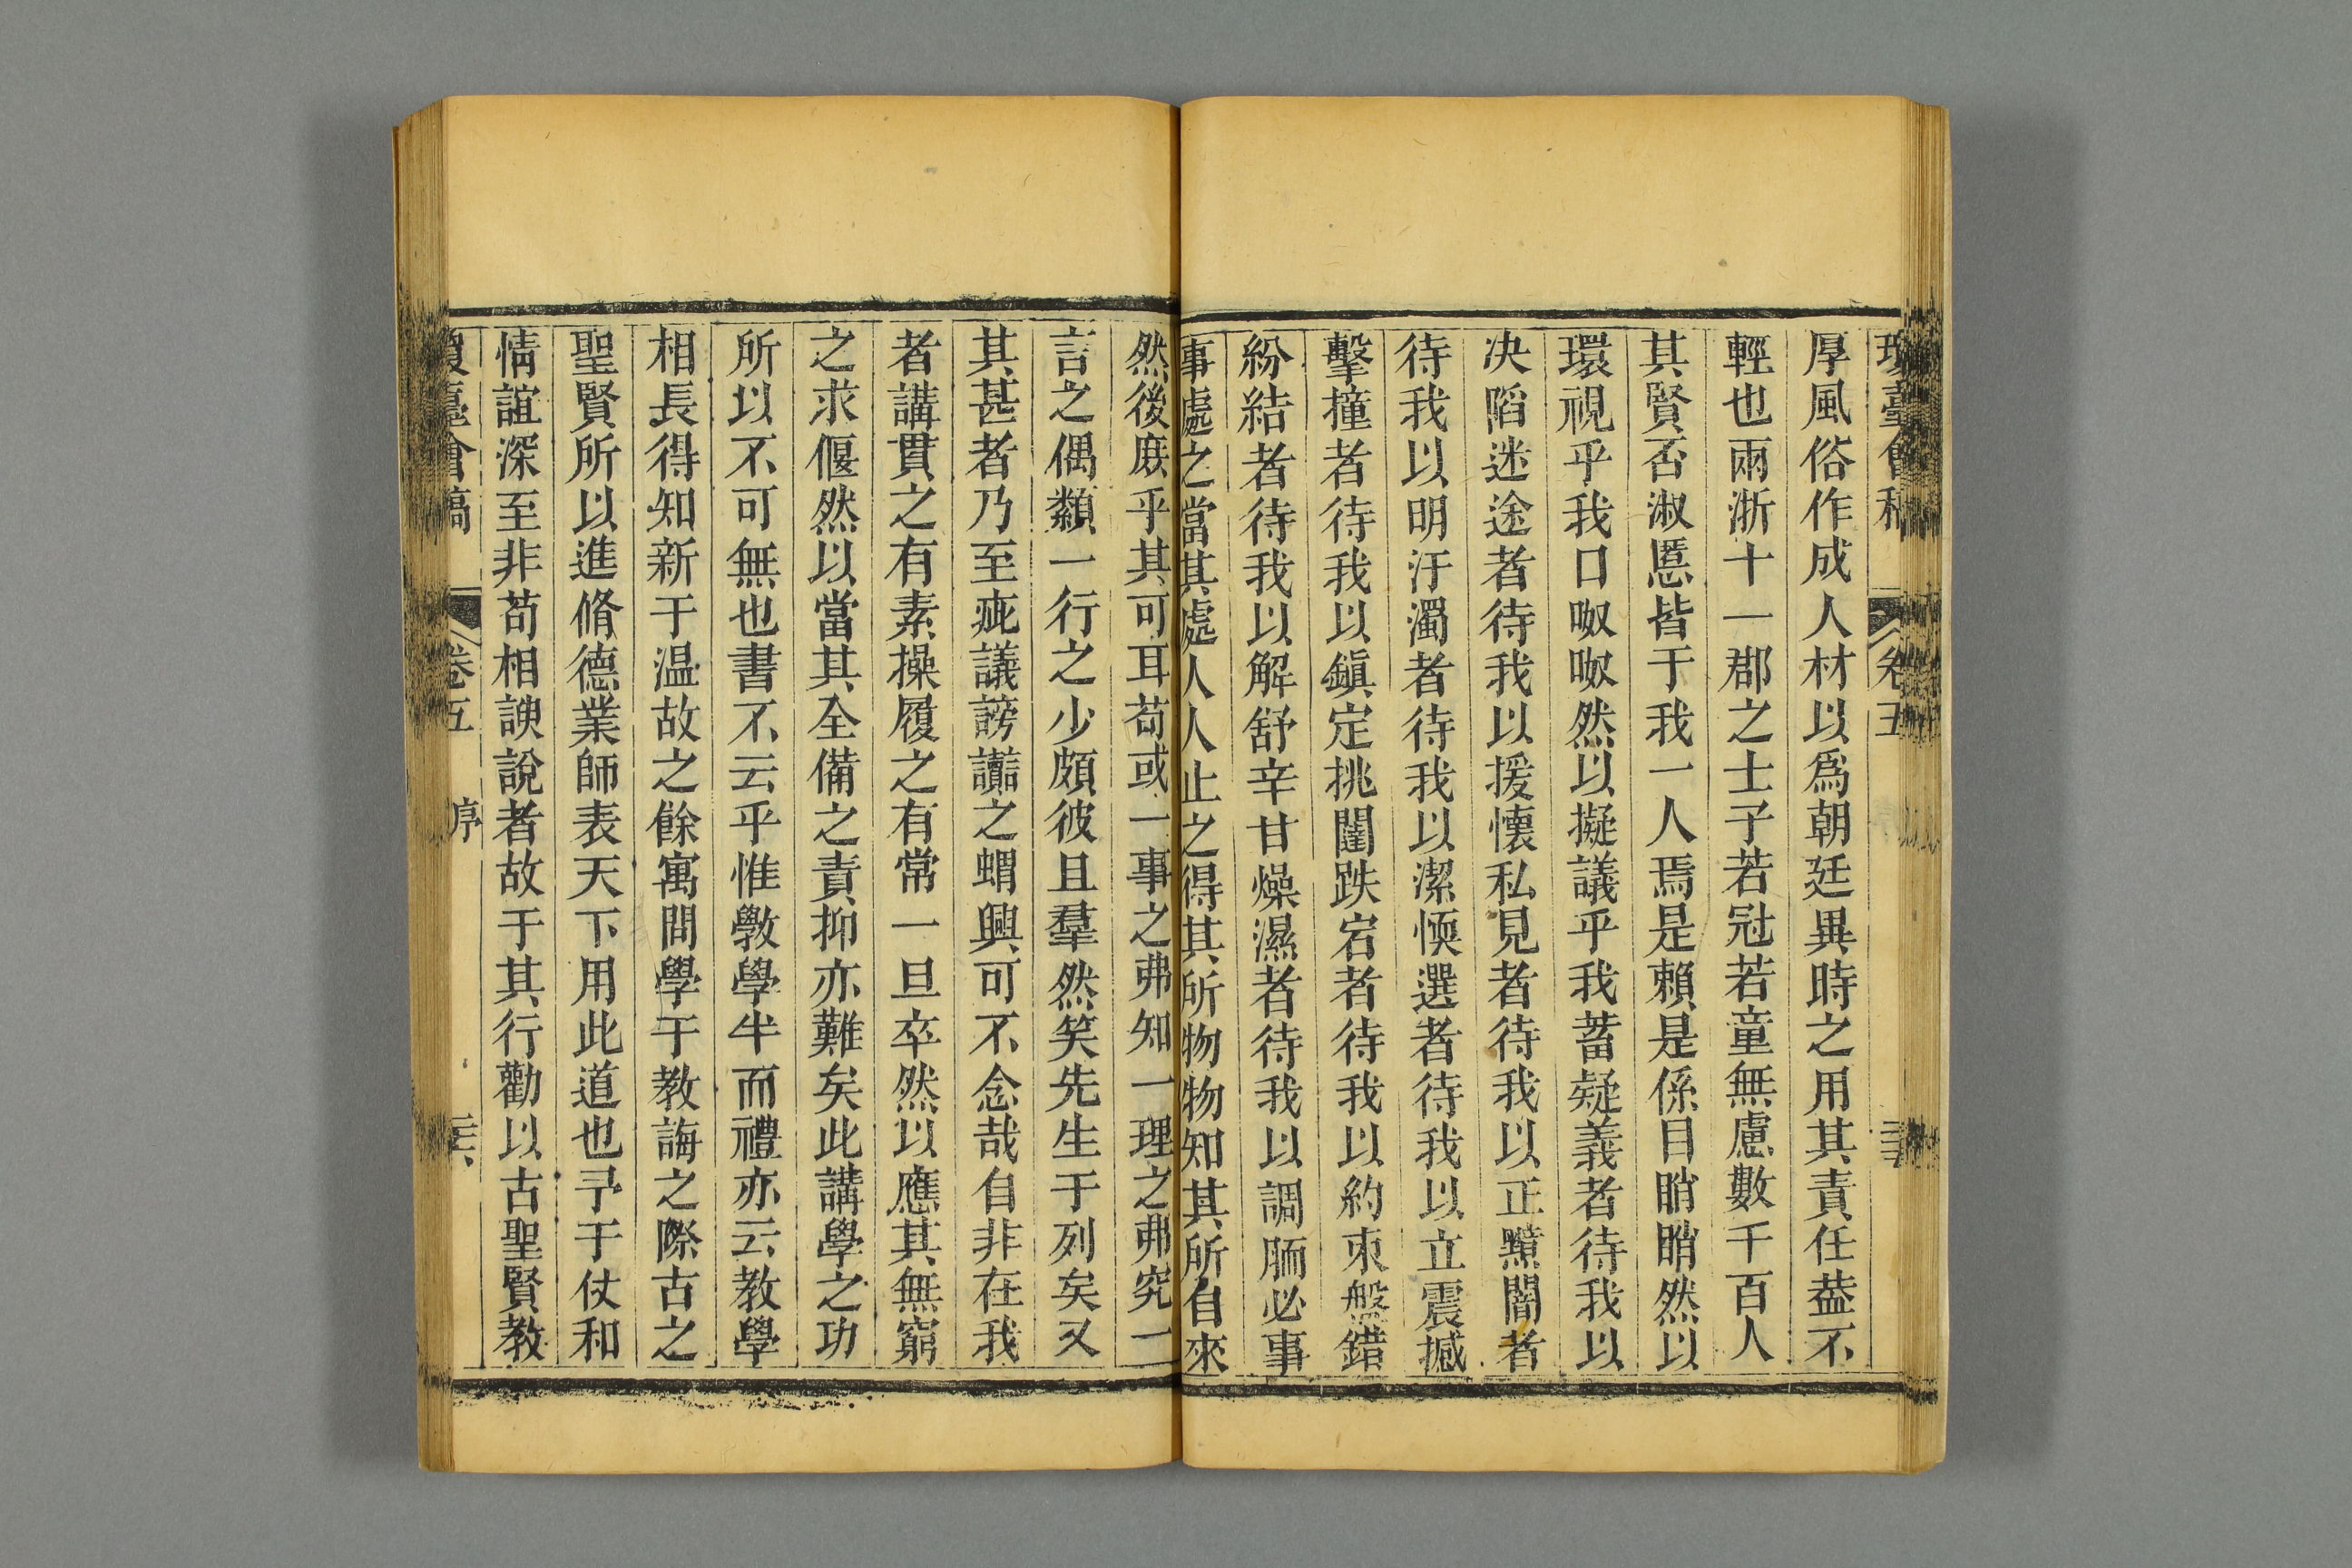 臺會稿 卷五
厚風俗作成人材以爲朝廷異時之用其責任葢不
輕也兩浙十一郡之士子若冠若童無慮數千百人
其賢否淑慝皆于我一人焉是賴是係目睄睄然以
環視乎我口呶呶然以擬議乎我蓄疑義者待我以
决陷迷途者待我以援懷私見者待我以正黯闇者
待我以明汙濁者待我以潔愞選者待我以立震撼
擊撞者待我以鎭定挑闥跌宕者待我以約朿盤錯
紛結者待我以解舒辛甘燥濕者待我以調胹必事
事處之當其處人人止之得其所物物知其所自來
然後庻乎其可耳茍或一事之弗知一理之弗究一
言之偶纇一行之少頗彼且羣然笑先生于列矣又
其甚者乃至疵議謗讟之蝟興可不念哉自非在我
者講貫之有素操履之有常一旦卒然以應其無窮
之求偃然以當其全備之責抑亦難矣此講學之功
所以不可無也書不云乎惟斆學半而禮亦云教學
相長得知新于温故之餘寓問學于教誨之際古之
聖賢所以進脩德業師表天下用此道也予于仗和
情誼深至非茍相諛說者故于其行勸以古聖賢教
瓊臺會稿 卷五 序